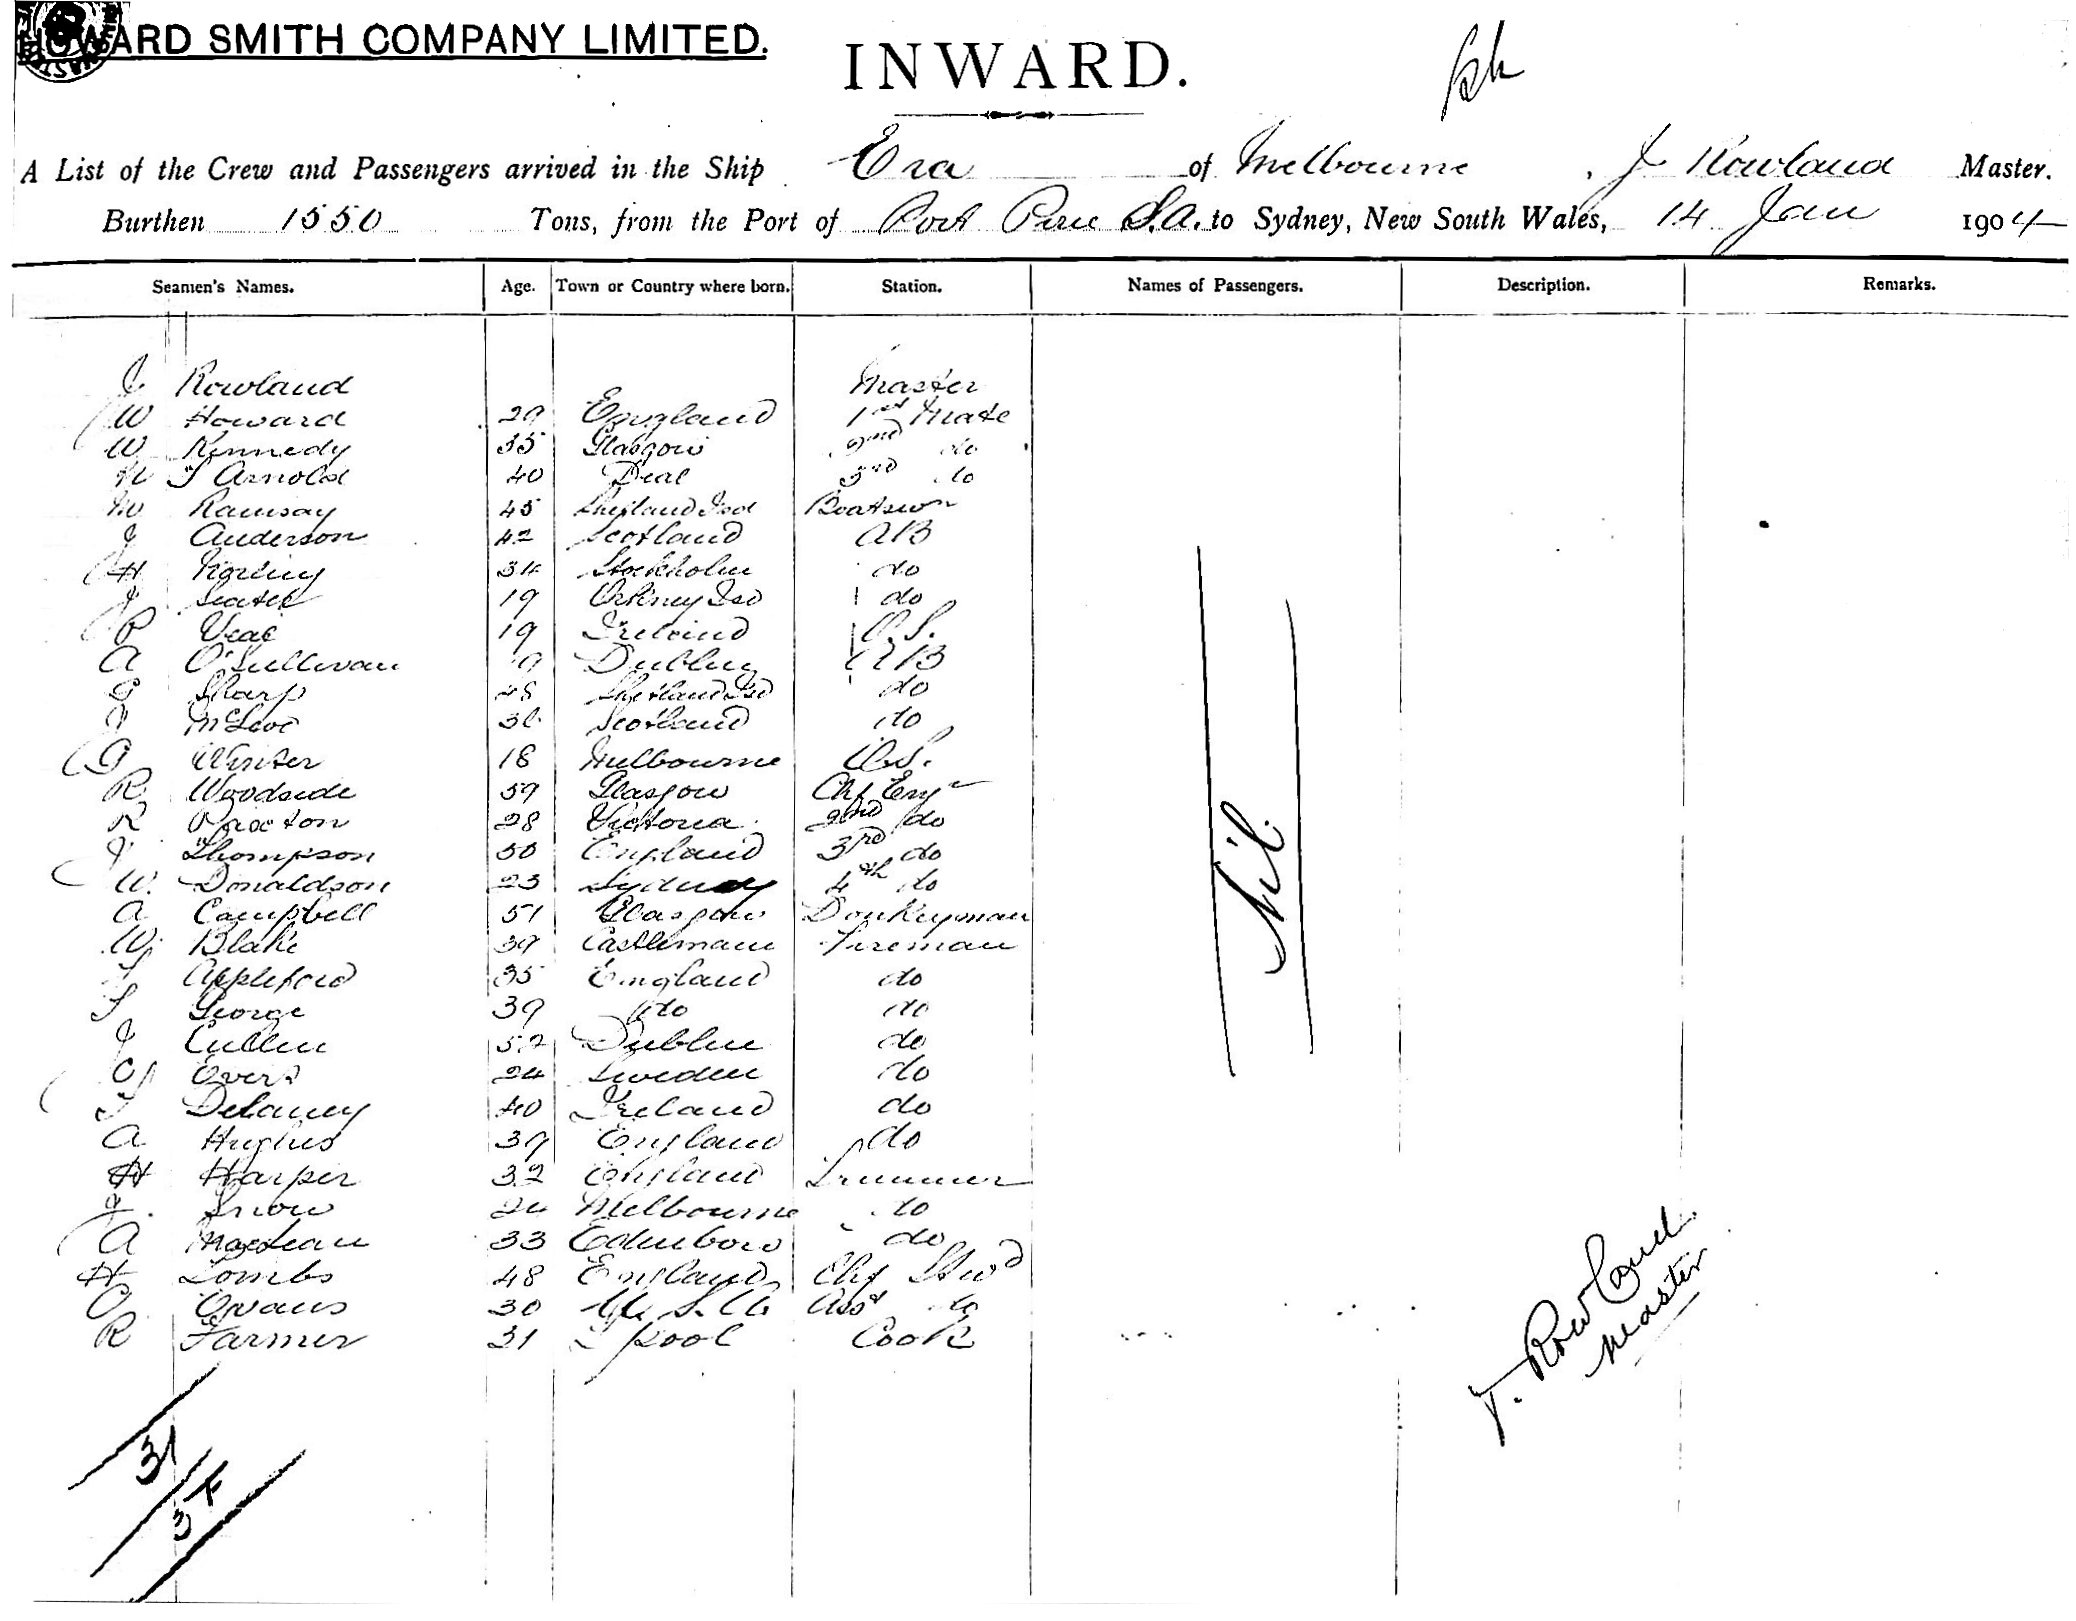 WARD SMITH COMPANY LIMITED.
INWARD.
A List of the Crew and Passengers arrived in the Ship Era of Melbourne, J Rowland Master.
Burthen 1550 Tons, from the Port of Port Pirie S.A. to Sydney, New South Wales, 14 Jan 1904
Seamen's Names. Age. Town or Country where born. Station. Names of Passengers. Description. Remarks.
J Rowland Master
W Howard 29 England 1st Mate
W Kennedy 35 Glasgow 2nd do
T Arnold 40 Deal 3rd do
Ramsay 45 Boatswn
J Anderson 42 Scotland AB
H 34 Stockholm do
J 19 Orkney Isd do
P 19 Ireland O.S.
A O'Sullivan Dublin AB
Sharp 28 Shetland Isd do
Scotland do
G Winter 18 Melbourne O.S.
R Woodside 59 Glasgow Chf Engr
R Paxton 28 Victoria 2nd do
J Thompson 50 England 3rd do
W. Donaldson 23 Sydney 4th do
A Campbell 51 Glasgow Donkeyman
W. Blake 39 Castlemain Fireman
Appleford 35 England do
George 39 do do
J Cullen 52 Dublin do
C Evers 24 Sweden do
T Delaney 40 Ireland do
A Hughes 39 England do
H Harper 32 England Trimmer
J. Snow 24 Melbourne do
A 33 Edinboro do
H Lombs 48 England Chf Stwd
Evans 30 Asst do
R Farmer 31 L'pool Cook
Nil.
J. Rowland
Master
31